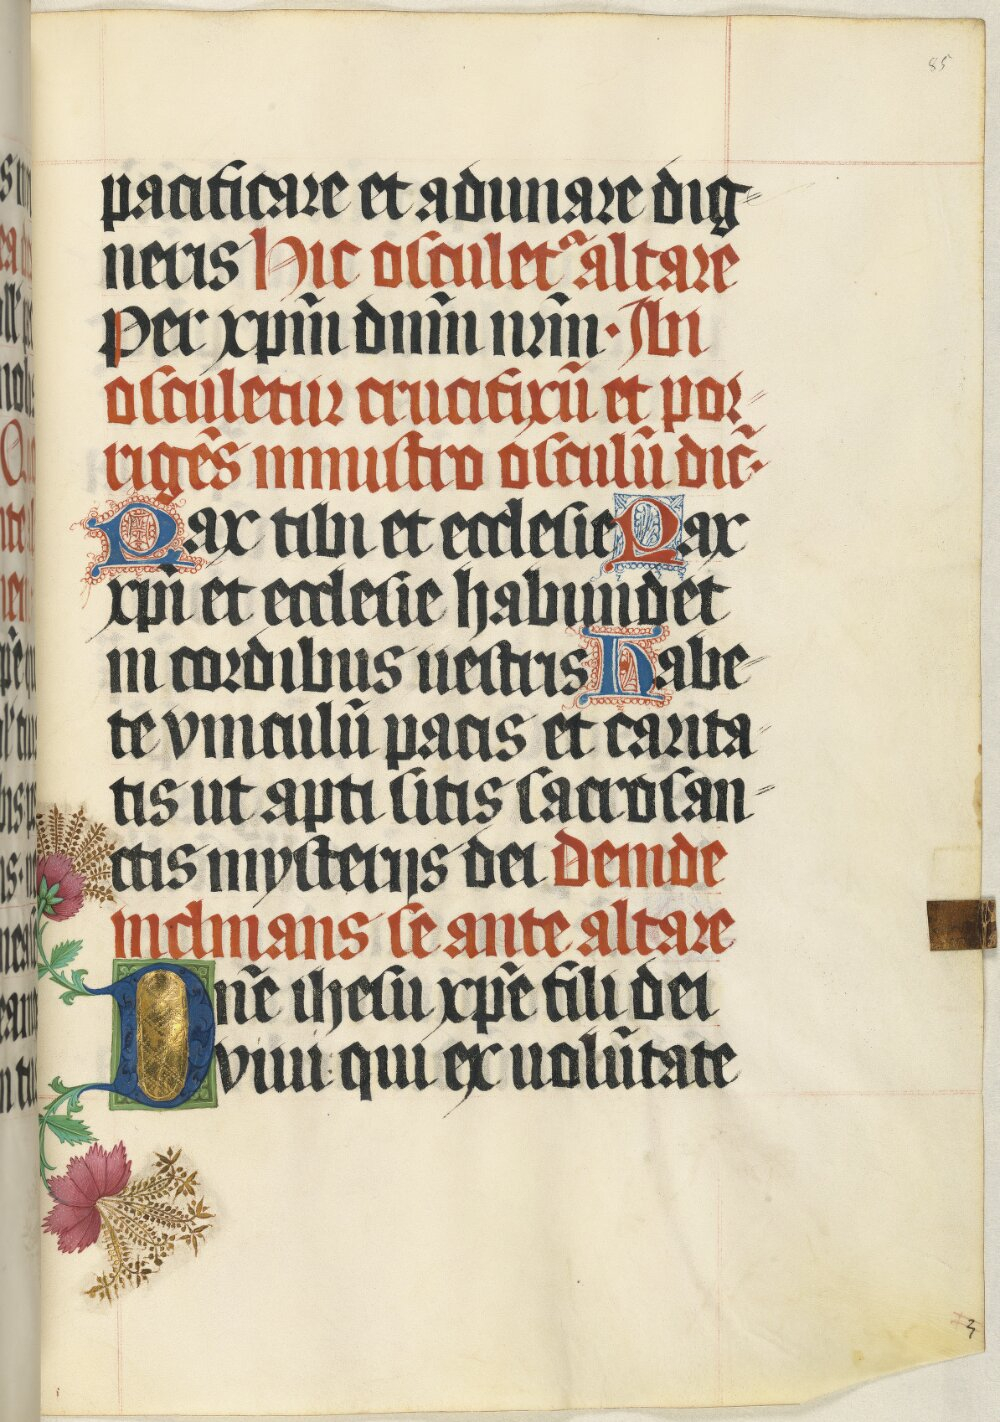 85
pacificare et adunare dig
neris Hic osculet᷑ altare
Per xp̄m dn̄m nr̄m · Hn̄
osculetur crucifixū et por
rigēs ministro osculū dic̄·
Pax tibi et ecclesie Pax
xp̄i et ecclesie habundet
in cordibus uestris Habe
te vinculū pacis et carita
tis ut apti sitis sacrosan
ctis mysterijs dei Deinde
inclinans se ante altare
Dn̄e ihesu xp̄e fili dei
viui qui ex uolūtate